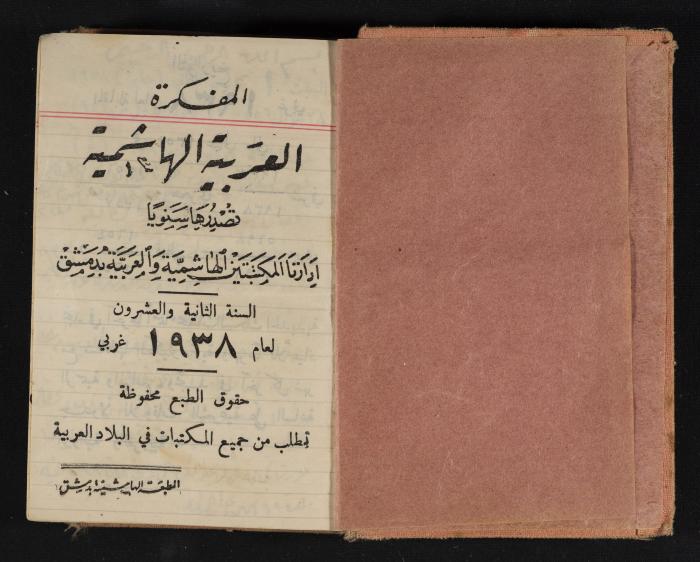 المفكرة
العربية الهاشمية
تصدرها سنويا
إدارتا المكتبتين الهاشمية والعربية بدمشق
السنة الثانية والعشرون
لعام ١٩٣٨ غربي
حقوق الطبع محفوظة
تطلب من جميع المكتبات في البلاد العربية
المطبعة الهاشمية بدمشق